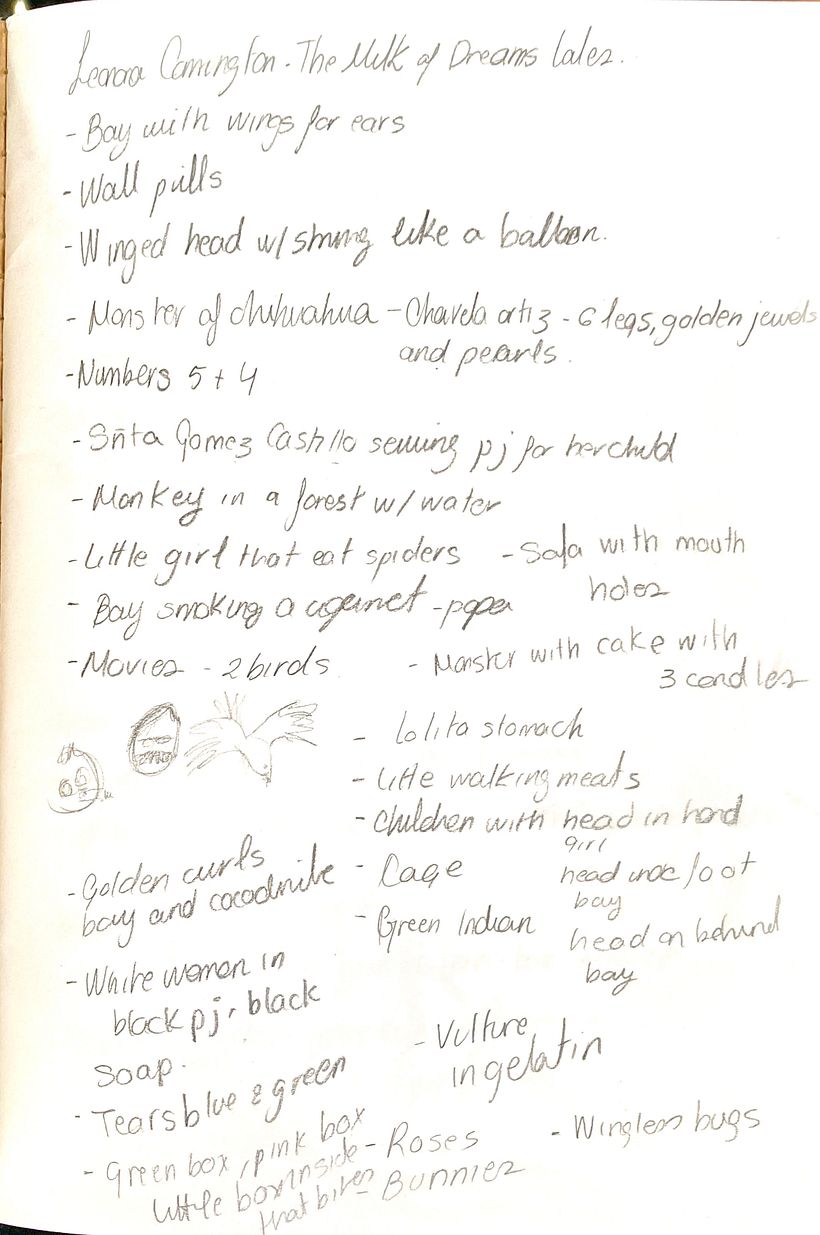 Leonora Carrington - The Milk of Dreams tales.
- Boy with wings for ears
- Wall pills
- Winged head w/ string like a balloon.
- Monster of chihuahua - Chavela ortiz - 6 legs, golden jewels
and pearls.
- Numbers 5 + 4
- Sñta Gomez Castillo sewing pj for her child
- Monkey in a forest w/ water
- Little girl that eat spiders - Sofa with mouth
holes
- Boy smoking a - paper
- Movies - 2 birds - Monster with cake with
3 candles
- Lolita stomach
- Little walking meats
- Children with head in hand
girl
- Golden curls - Cage head foot
boy and boy
- Green Indian head on behind
boy
- White woman in
black pj, black
soap.
- Vulture
in gelatin
- Tears blue & green
- Green box, pink box - Roses - Wingless bugs
little box inside - Bunniez
that bites